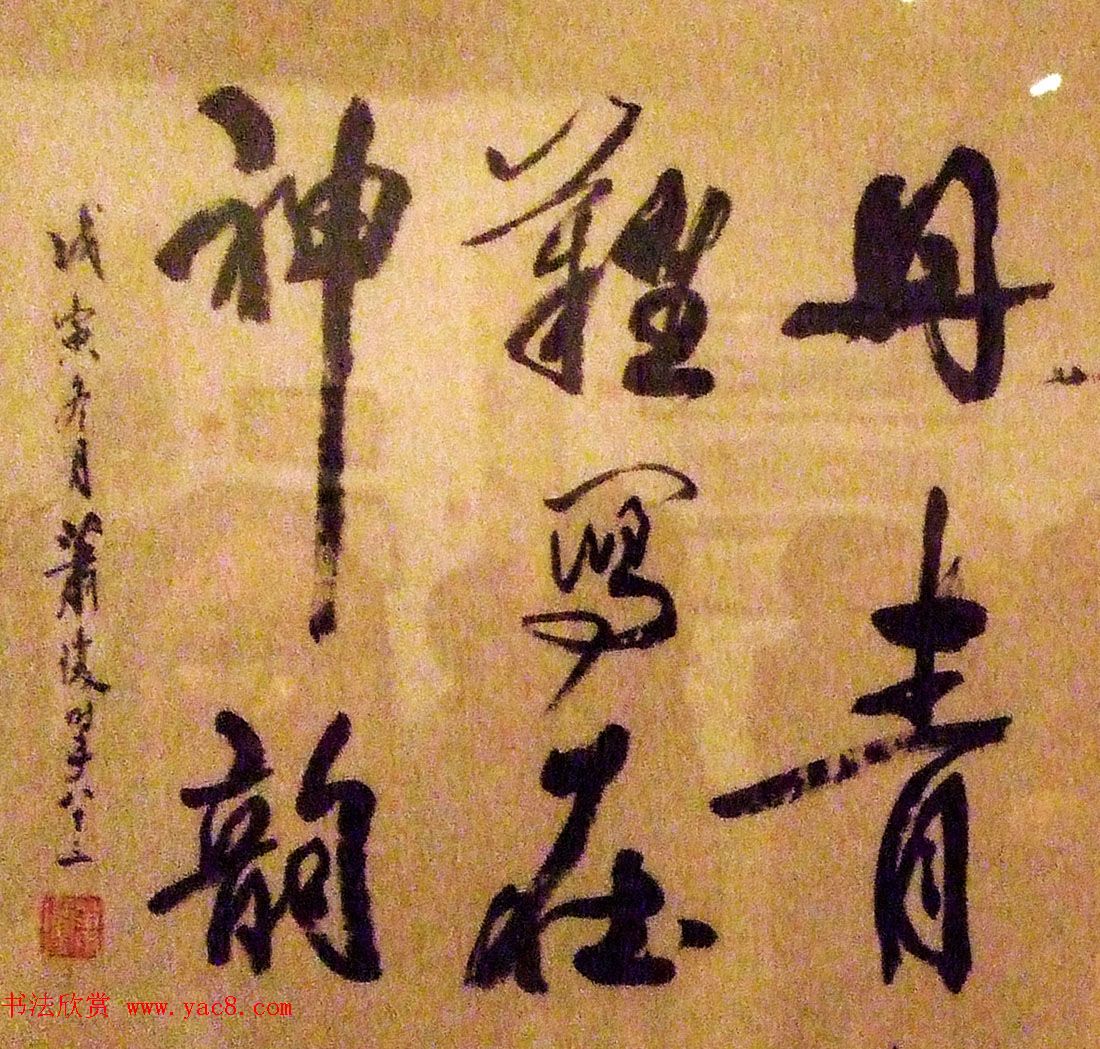 丹青
難寫在
神韻
戊寅冬月蕭時年八十
书法欣赏 www.yac8.com